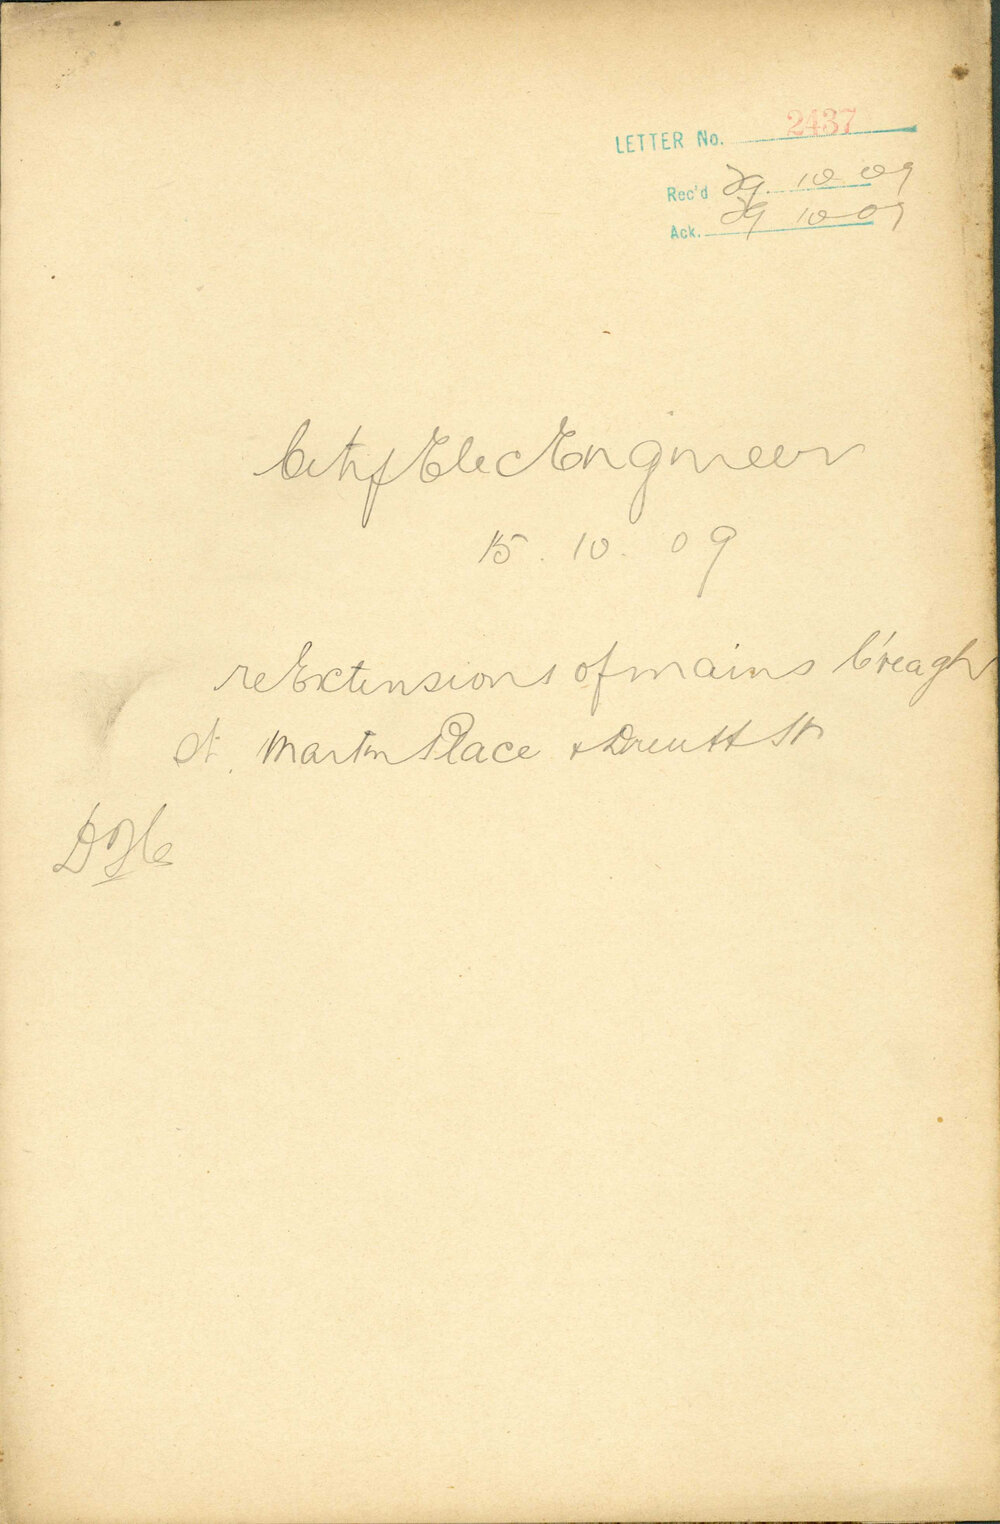 LETTER No. 2437
Rec'd 29.10.09
Ack. 29 10 09
City Elec Engineer
15.10.09
re Extensions of mains C'reagh
St. Martin Place & Druitt St